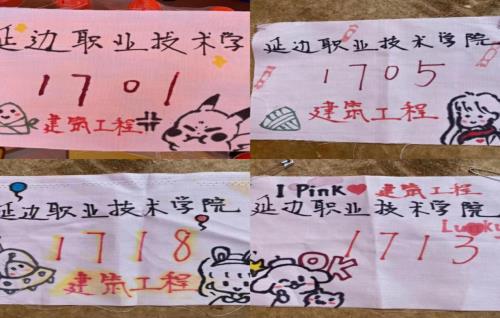 延边职业技术学
1701
建筑工程
延边职业技术学院
1705
建筑工程
延边职业技术学院
1718
建筑工程
I Pink 建筑工程
延边职业技术学院
1713
Lucky
OK